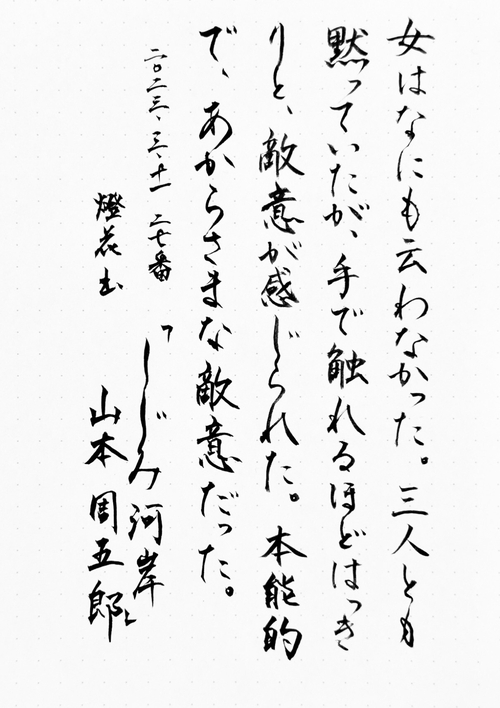 女はなにも云わなかった。三人とも
黙っていたが、手で触れるほどはっき
りと、敵意が感じられた。本能的
で、あからさまな敵意だった。
二〇二三、三、十一 二七番
「しじみ河岸」
燈花出
山本周五郎